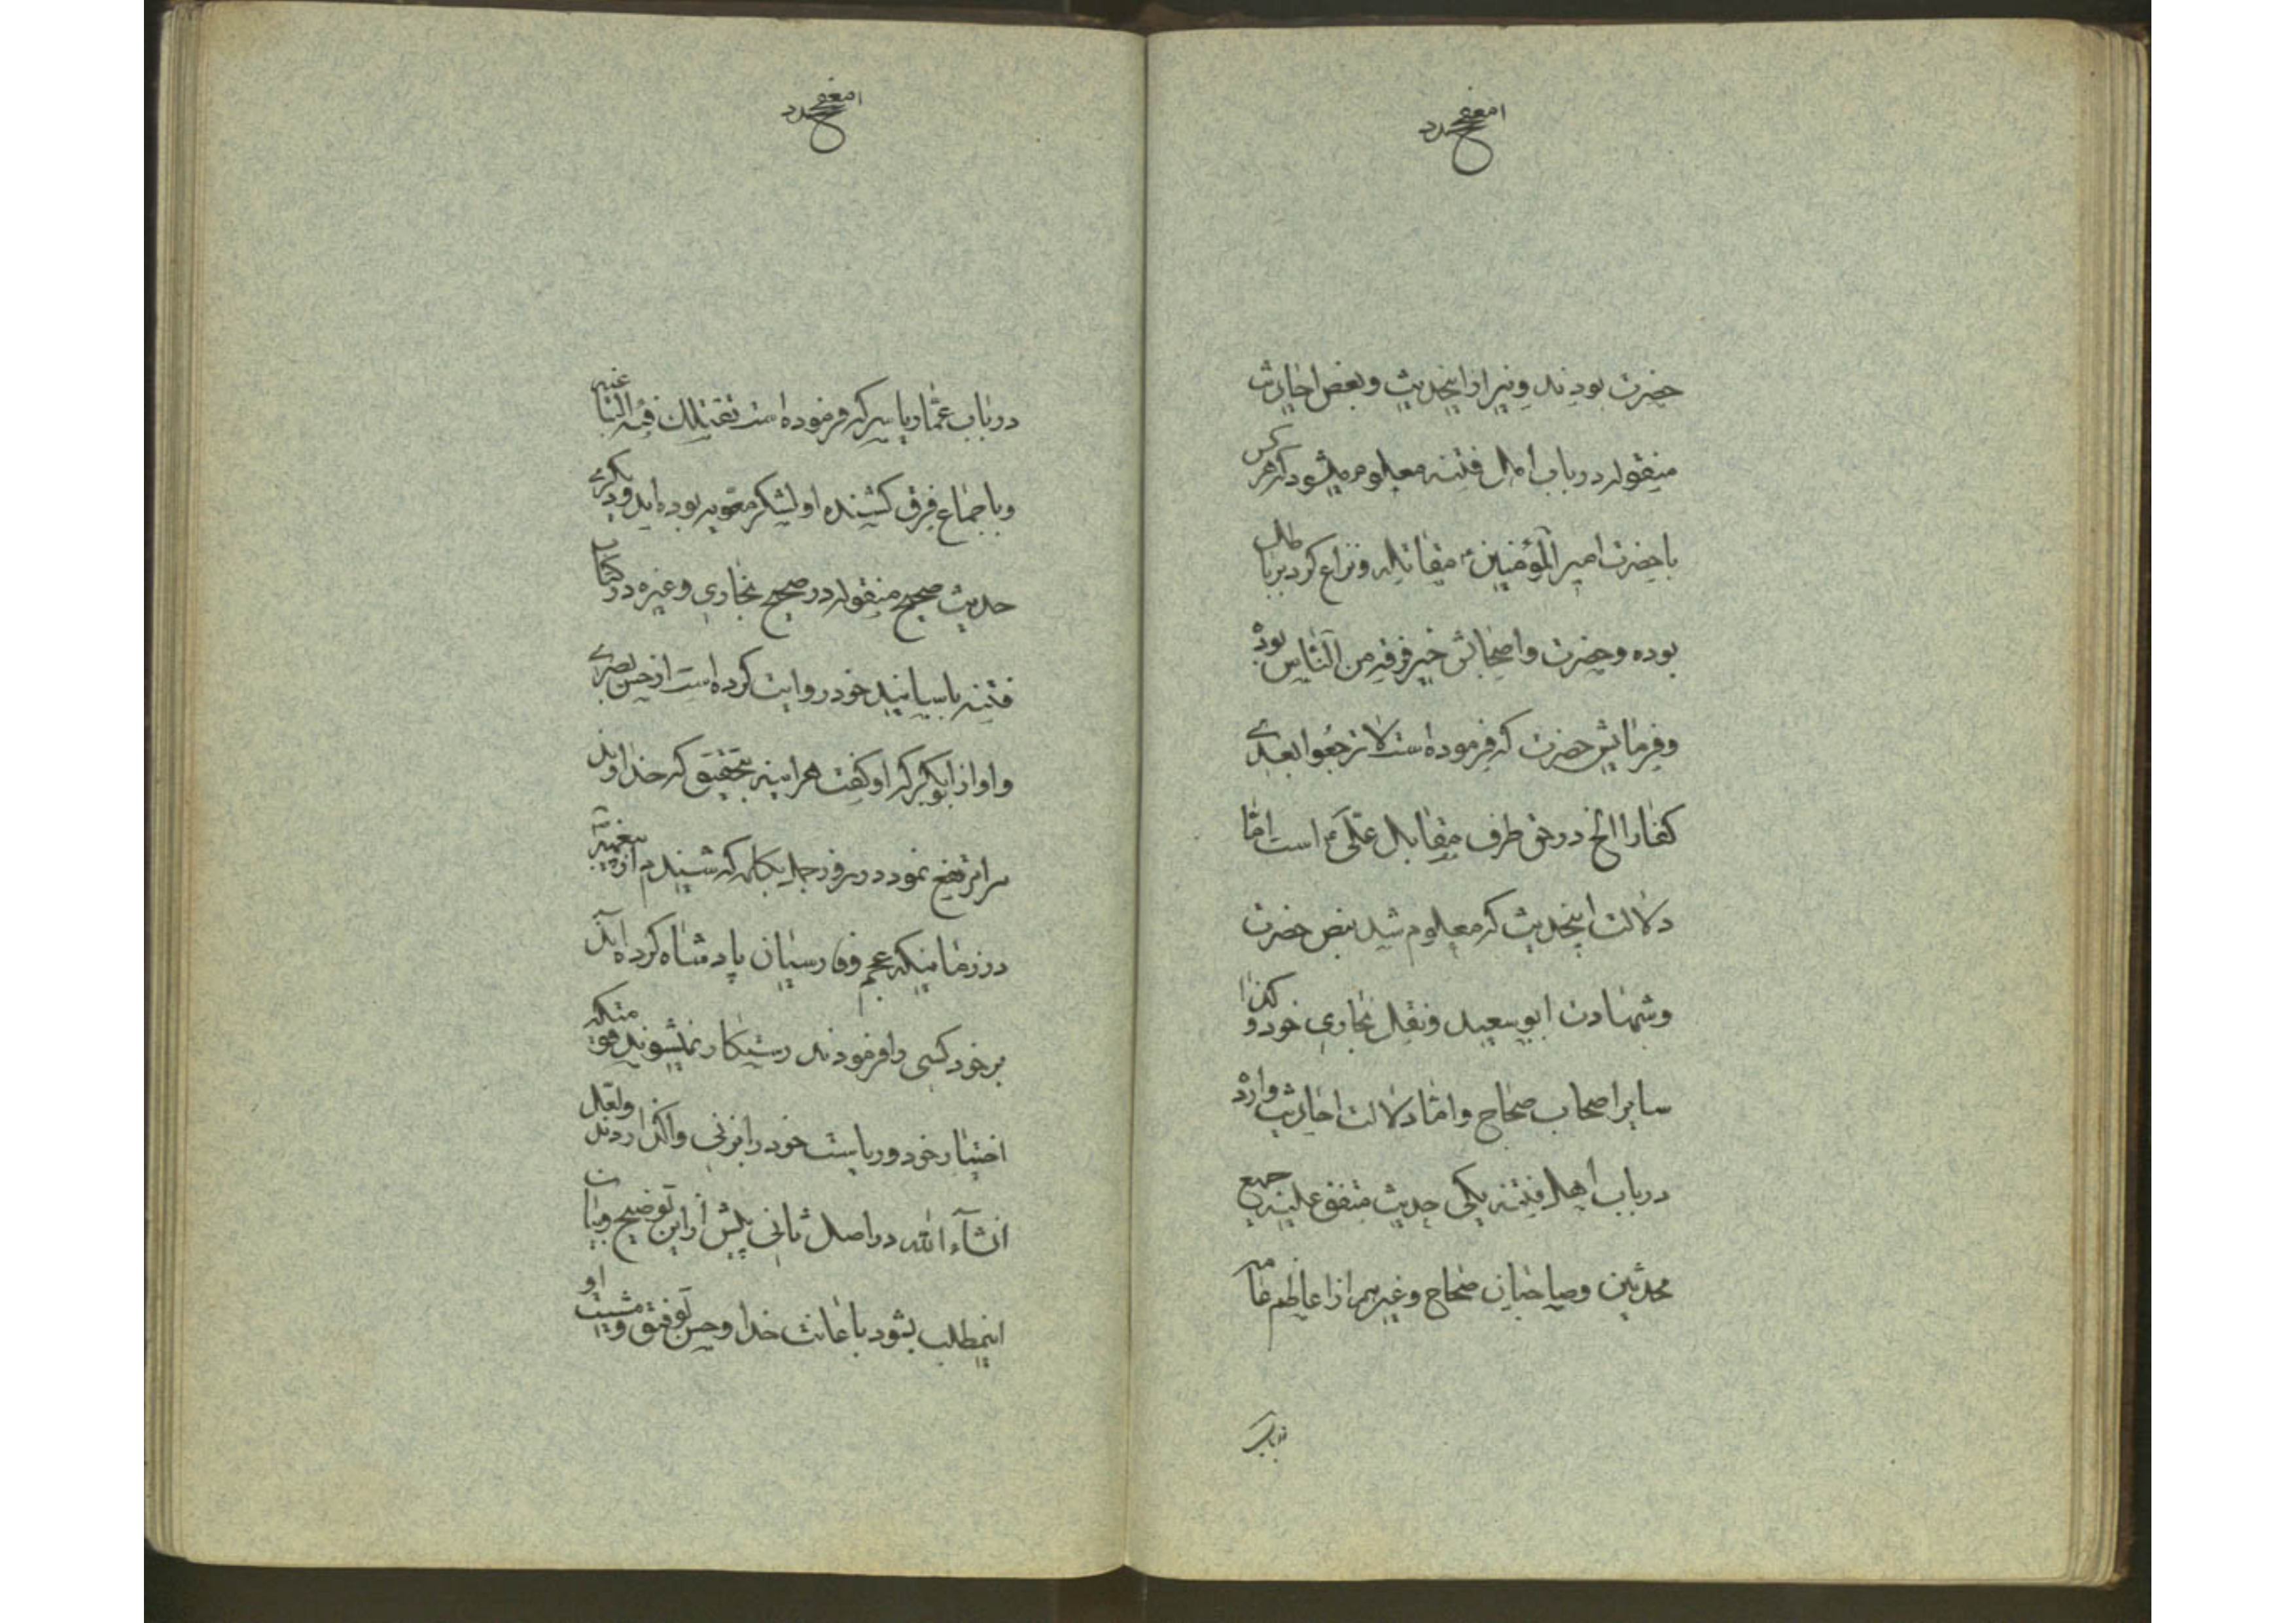 حضرت بودند و نیز از اینحدیث و بعض احادیث
منقوله در باب اهل فتنه معلوم میشود که هر کس
با حضرت امیر المؤمنین ع مقاتله و نزاع کرد بر باطل
بوده و حضرت و اصحابش خیر فرقه من الناس بود
و فرمایش حضرت که فرموده است لا ترجعوا بعدی
کفارا الخ در حق طرف مقابل علی ع است اما
دلالت اینحدیث که معلوم شد بنص حضرت
و شهادت ابو سعید و نقل بخاری خود و کذا
سایر اصحاب صحاح و اما دلالت احادیث وارد
در باب اهل فتنه یکی حدیث متفق علیه جمیع
محدثین و صاحبان صحاح و غیرهم از اعاظم عامه
در باب
در باب عمار یاسر که فرموده است تقتلک فئه الباغیه
و باجماع فرق کشنده او لشکر معویه بوده اند و دیگری
حدیث صحیح منقوله در صحیح بخاری و غیره در کتاب
فتنه باسانید خود روایت کرده است از حسن بصری
و او از ابو بکره که او گفت هر اینه بتحقیق که خداوند
مرا نفع نمود در روز جمل بکلمه که شنیدم از پیغمبر
در زمانیکه عجم و فارسیان پادشاه کرده اند
بر خود کسی را فرمودند رستکار نمیشوند قومیکه
اختیار خود و ریاست خود را بزنی واگذاردند و لعل
انشاء الله در اصل ثانی پیش از این توضیح و بیان
اینمطلب بشود باعانت خدا و حسن توفیق و مشیت او